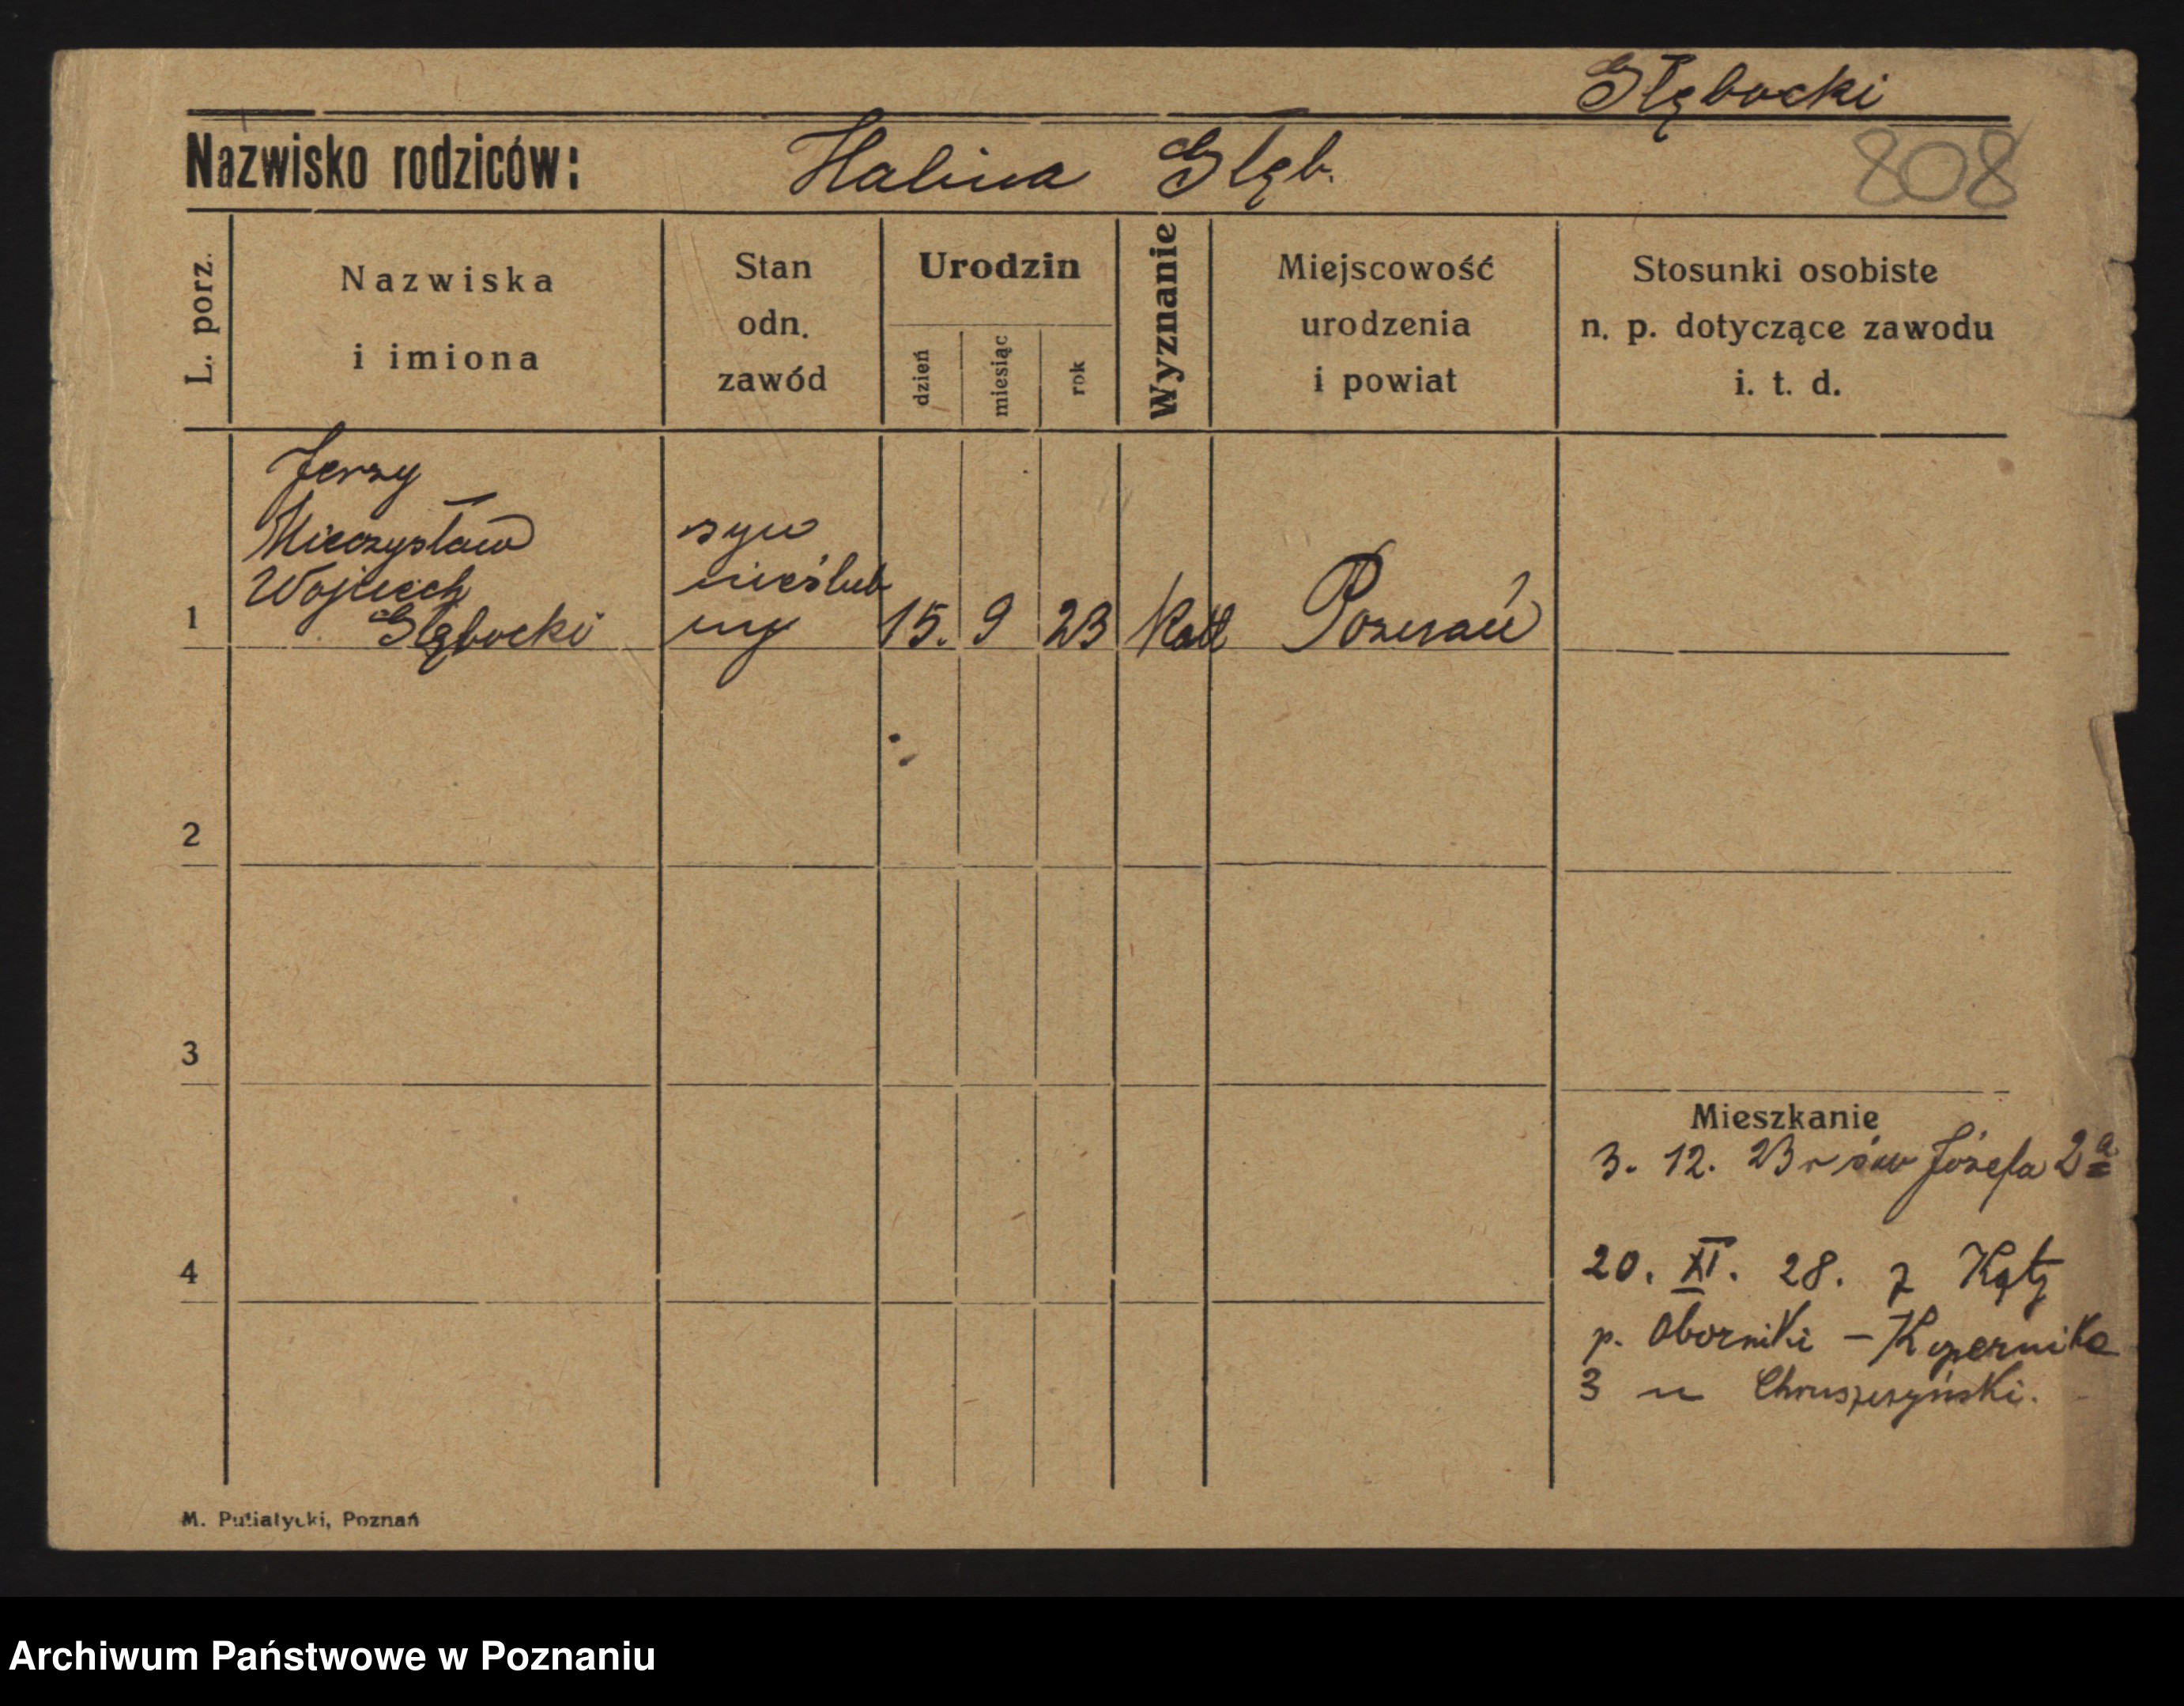 Głębocki
Nazwisko rodziców: Halina Głęb. 808
L. porz.
Nazwiska
i imiona
Stan
odn.
zawód
Urodzin
dzień
miesiąc
rok
Wyznanie
Miejscowość
urodzenia
i powiat
Stosunki osobiste
n. p. dotyczące zawodu
i. t. d.
Jerzy
Mieczysław
Wojciech
Głębocki
syn
nieślub
ny
1 15. 9 23 Katl Poznań
2
3
Mieszkanie
3. 12. 23 r św Józefa 2a
4
20. XI. 28. z Kąty
p. Oborniki - Kopernika
3 u Chruszczyński.
M. Putiatycki, Poznań
Archiwum Państwowe w Poznaniu